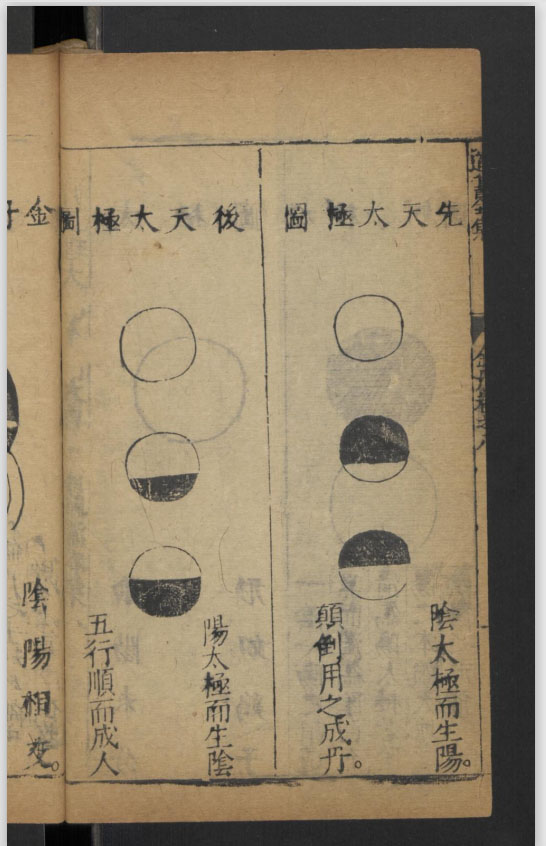 先天太極圖
陰太極而生陽。
顛倒用之成丹。
後天太極圖
陽太極而生陰
五行順而成人
金
陰陽相交。